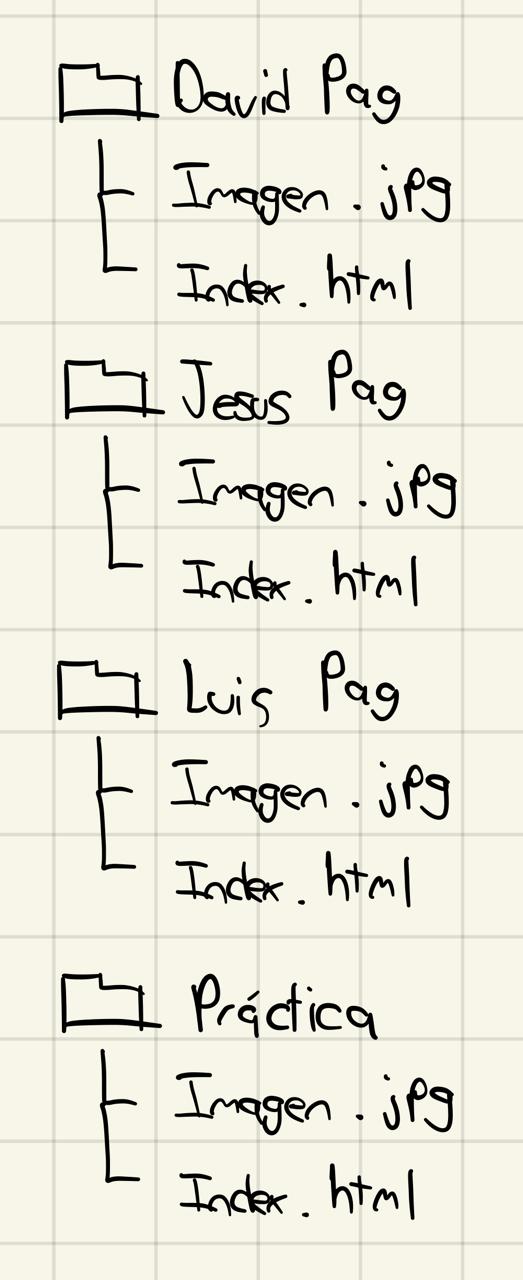 David Pag
Imagen . jpg
Index . html
Jesus Pag
Imagen . jpg
Index . html
Luis Pag
Imagen . jpg
Index . html
Práctica
Imagen . jpg
Index . html